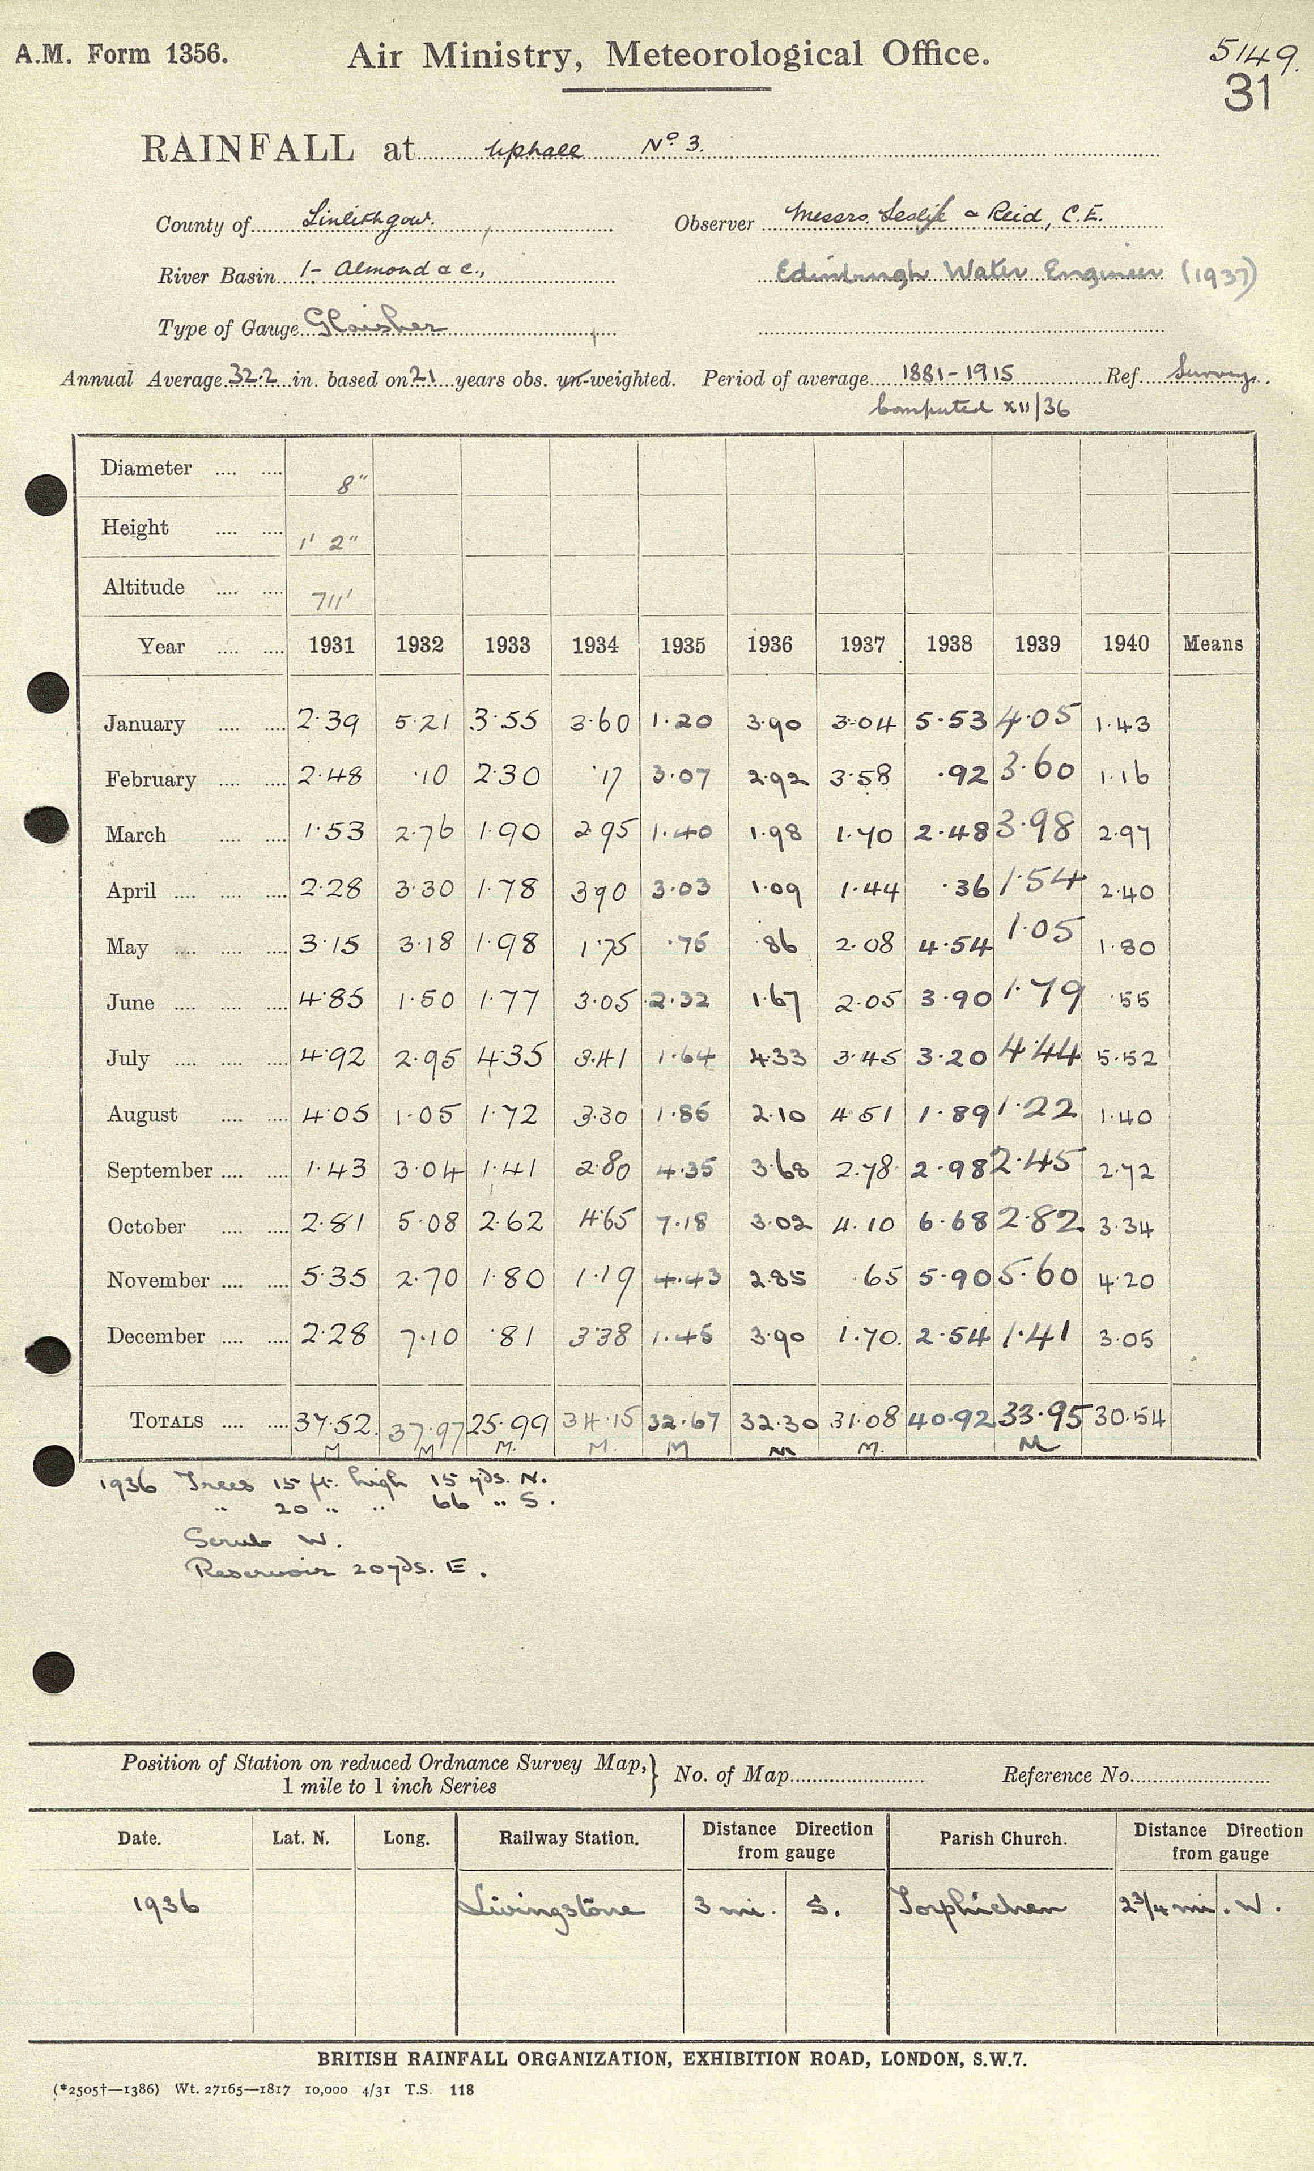 A.M. Form 1356. Air Ministry, Meteorological Office. 5149.
31
RAINFALL at Uphall No 3.
County of Linlithgow. Observer Messrs. Leslie & Reid, C.E.
River Basin 1- Almond &c., Edinburgh Water Engineer (1937)
Type of Gauge Glaisher
Annual Average 32.2 in. based on 21 years obs. un-weighted. Period of average 1881-1915 Ref. Survey.
Computed XII/36
Diameter 8"
Height 1' 2"
Altitude 711'
Year 1931 1932 1933 1934 1935 1936 1937 1938 1939 1940 Means
January 2.39 5.21 3.55 3.60 1.20 3.90 3.04 5.53 4.05 1.43
February 2.48 .10 2.30 .17 3.07 2.92 3.58 .92 3.60 1.16
March 1.53 2.76 1.90 2.95 1.40 1.98 1.70 2.48 3.98 2.97
April 2.28 3.30 1.78 3.90 3.03 1.09 1.44 .36 1.54 2.40
May 3.15 3.18 1.98 1.75 .75 .86 2.08 4.54 1.05 1.80
June 4.85 1.50 1.77 3.05 2.32 1.67 2.05 3.90 1.79 .55
July 4.92 2.95 4.35 3.41 1.64 4.33 3.45 3.20 4.44 5.52
August 4.05 1.05 1.72 3.30 1.86 2.10 4.51 1.89 1.22 1.40
September 1.43 3.04 1.41 2.80 4.35 3.68 2.78 2.98 2.45 2.72
October 2.81 5.08 2.62 4.65 7.18 3.02 4.10 6.68 2.82 3.34
November 5.35 2.70 1.80 1.19 4.43 2.85 .65 5.90 5.60 4.20
December 2.28 7.10 .81 3.38 1.45 3.90 1.70 2.54 1.41 3.05
TOTALS 37.52 37.97 25.99 34.15 32.67 32.30 31.08 40.92 33.95 30.54
M M M. M. M M M. M
1936 Trees 15 ft. high 15 yds. N.
" 20 " " 66 " S.
Scrub W.
Reservoir 20 yds. E.
Position of Station on reduced Ordnance Survey Map, 1 mile to 1 inch Series } No. of Map Reference No.
Date. Lat. N. Long. Railway Station. Distance Direction from gauge Parish Church. Distance Direction from gauge
1936 Livingstone 3 mi. S. Torphichen 2¾ mi. W.
BRITISH RAINFALL ORGANIZATION, EXHIBITION ROAD, LONDON, S.W.7.
(*2505†—1386) Wt. 27165—1817 10,000 4/31 T.S. 118